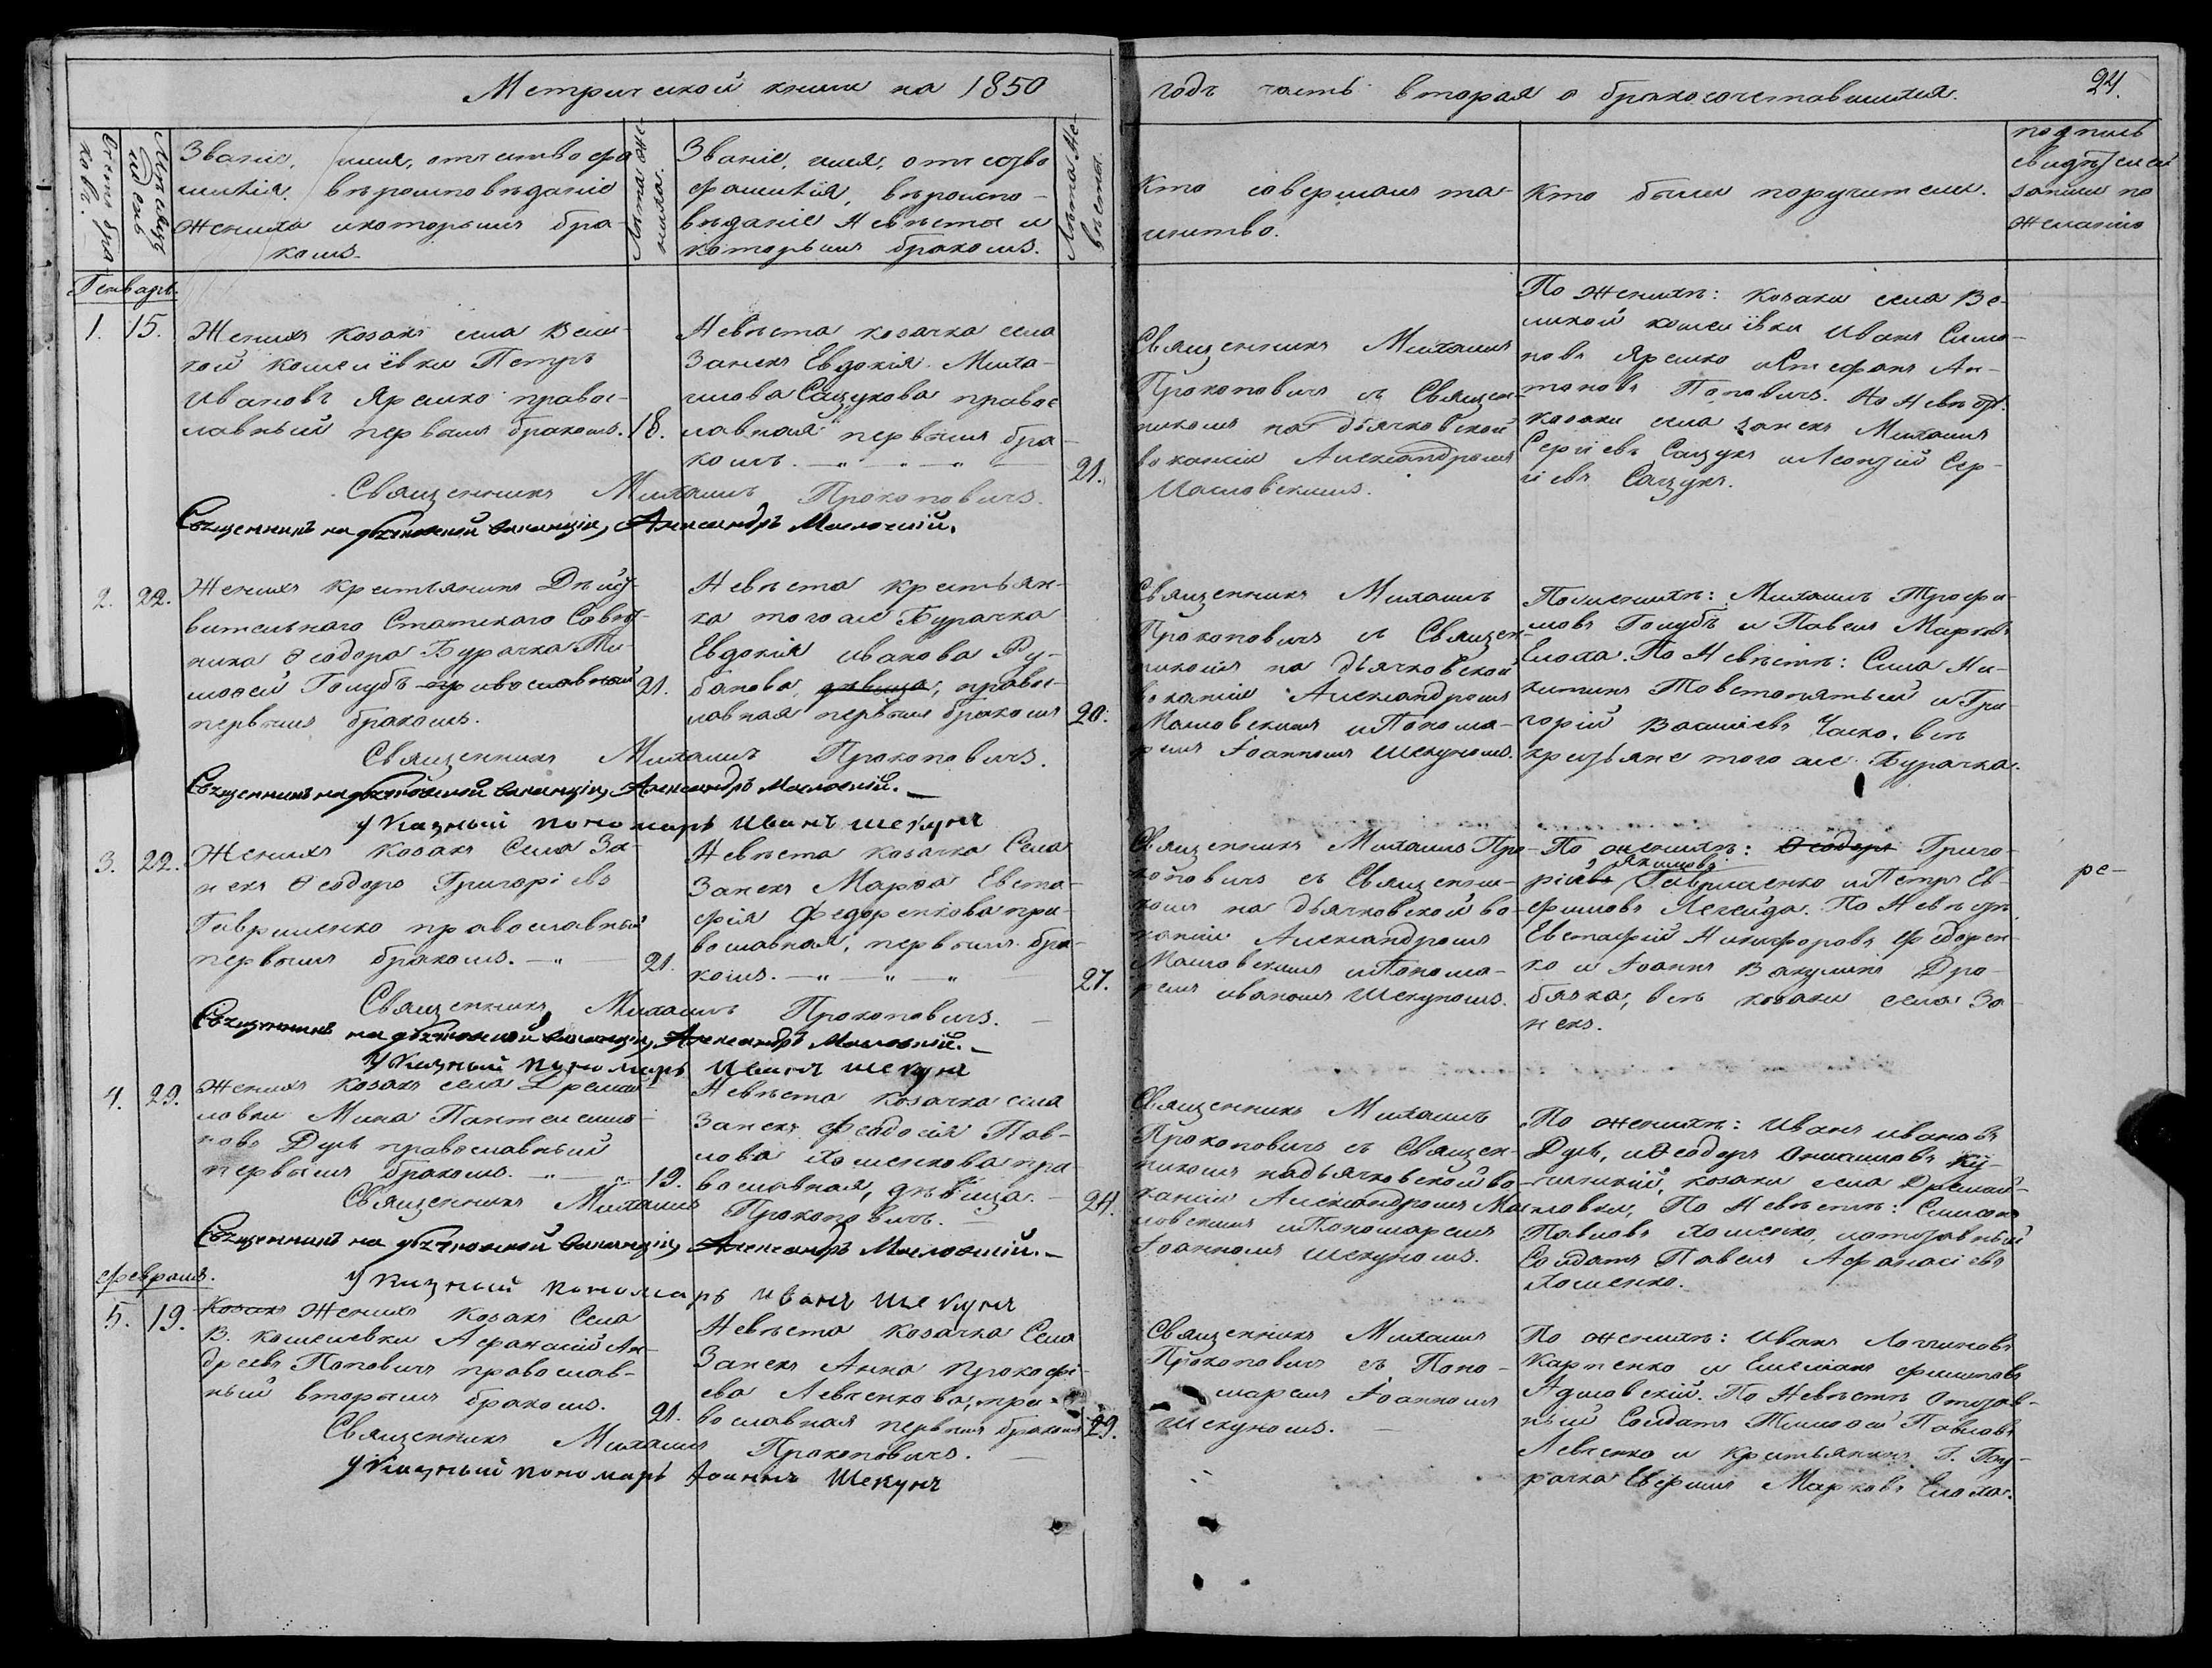 Метрической книги на 1850
годъ часть вторая о бракосочетавшихся.
24.
Счетъ бра-
ковъ.
Мѣсяцъ
и день
Званіе, имя, отчество фа
милія, вѣроисповѣданіе
жениха и которымъ бра-
комъ.
Лѣта же-
ниха.
Званіе, имя, отчество
фамилія, вѣроиспо-
вѣданіе Невѣсты и
которымъ бракомъ.
Лѣта Не-
вѣсты.
Кто совершалъ та-
инство.
Кто были поручители.
подпись
свидѣтелей
записи по
желанію
Генварь.
1. 15.
Женихъ козакъ села Вели-
кой кошелѣвки Петръ
Ивановъ Яремко правос-
лавный первымъ бракомъ.
18.
Невѣста козачка села
Занекъ Евдокія Миха-
илова Сацукова правос
лавная первымъ бра-
комъ.
21.
Священникъ Михаилъ
Прокоповичъ съ Священ-
никомъ на дьячковской
ваканціи Александромъ
Масловскимъ.
По женихѣ: козаки села Ве-
ликой кошелівки Иванъ Симо-
новъ Яремко и Стефанъ Ан-
тоновъ Поповичъ. По Невѣстѣ.
козаки села Занекъ Михаилъ
Сергѣевъ Сацукъ и Леонтій Сер-
гѣевъ Сацукъ.
Священникъ Михаилъ Прокоповичъ.
Священникъ на дьячковской ваканціи, Александръ Масловскій.
2. 22.
Женихъ крестьянинъ Дѣйст-
вительнаго Статскаго Совѣт-
ника Ѳеодора Бурачка Ти-
моѳей Голубъ православный
первымъ бракомъ.
21.
Невѣста крестьян-
ка того же Бурачка
Евдокія Иванова Ру-
банова, дѣвица, правос-
лавная первымъ бракомъ
20.
Священникъ Михаилъ
Прокоповичъ съ Священ-
никомъ на дьячковской
ваканціи Александромъ
Масловскимъ и Понома-
ремъ Іоанномъ Шекуномъ.
По женихѣ: Михаилъ Трофи-
мовъ Голубъ и Павелъ Марковъ
Елоха. По Невѣстѣ: Сила Ни-
китинъ Товстопятый и Гри-
горій Василіевъ Чако. всѣ
крестьяне того же Бурачка.
Священникъ Михаилъ Прокоповичъ.
Священникъ на дьячковской ваканціи, Александръ Масловскій.
Указный пономарь Иванъ Шекунъ
3. 22.
Женихъ козакъ Села За-
некъ Ѳеодоръ Григоріевъ
Гавриленко православный
первымъ бракомъ.
21.
Невѣста козачка Села
Занекъ Марѳа Евста-
фія Федоренкова пра-
вославная, первымъ бра-
комъ.
27.
Священникъ Михаилъ Про-
коповичъ съ Священни-
комъ на дьячковской ва-
канціи Александромъ
Масловскимъ и Понома-
ремъ Иваномъ Шекуномъ.
По женихѣ: Ѳеодоръ Григо-
Якимовъ
ріевъ Гавриленко и Петръ Ев-
фимовъ Легейда. По Невѣстѣ
Евстафій Никифоровъ Федорен-
ко и Іоаннъ Вакулинъ Дро-
бязка, всѣ козаки села За-
некъ.
ре-
Священникъ Михаилъ Прокоповичъ.
Священникъ на дьячковской ваканціи, Александръ Масловскій.
Указный пономарь Иванъ Шекунъ
4. 29.
Женихъ козакъ села Дремай-
ловки Мина Пантелеимо-
новъ Дуль православный
первымъ бракомъ.
19.
Невѣста козачка села
Занекъ Феодосія Пав-
лова Хоменкова пра-
вославная, дѣвица.
24.
Священникъ Михаилъ
Прокоповичъ съ Священ-
никомъ на дьячковской ва-
канціи Александромъ Мас-
ловскимъ и Пономаремъ
Іоанномъ Шекуномъ.
По женихѣ: Иванъ Ивановъ
Дуль, и Ѳеодоръ
козаки села Дремай-
ловки, По Невѣстѣ: Симеонъ
Павловъ Хоменко, и отставный
Солдатъ Павелъ Афанасіевъ
Хоменко.
Священникъ Михаилъ Прокоповичъ.
Священникъ на дьячковской ваканціи, Александръ Масловскій.
Указный пономарь Иванъ Шекунъ
Февраль.
5. 19.
Козакъ Женихъ козакъ Села
В. кошелевки Афанасій Ан-
дреевъ Поповичъ православ-
ный вторымъ бракомъ.
21.
Невѣста козачка Села
Занекъ Анна Прокофі-
ева Левченкова, пра-
вославная первымъ бракомъ
29.
Священникъ Михаилъ
Прокоповичъ съ Поно-
маремъ Іоанномъ
Шекуномъ.
По женихѣ: Иванъ Логгиновъ
Карпенко и Емеліанъ Филиповъ
Адамовскій. По Невѣстѣ Отстав-
ный Солдатъ Тимоѳей Павловъ
Левченко и крестьянинъ Г. Бу-
рачка Евфимъ Марковъ Елоха.
Священникъ Михаилъ Прокоповичъ.
Указный пономарь Іоаннъ Шекунъ